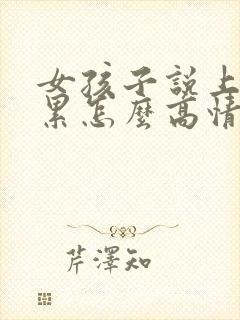 女孩子說上
累怎麼高情
芹澤知